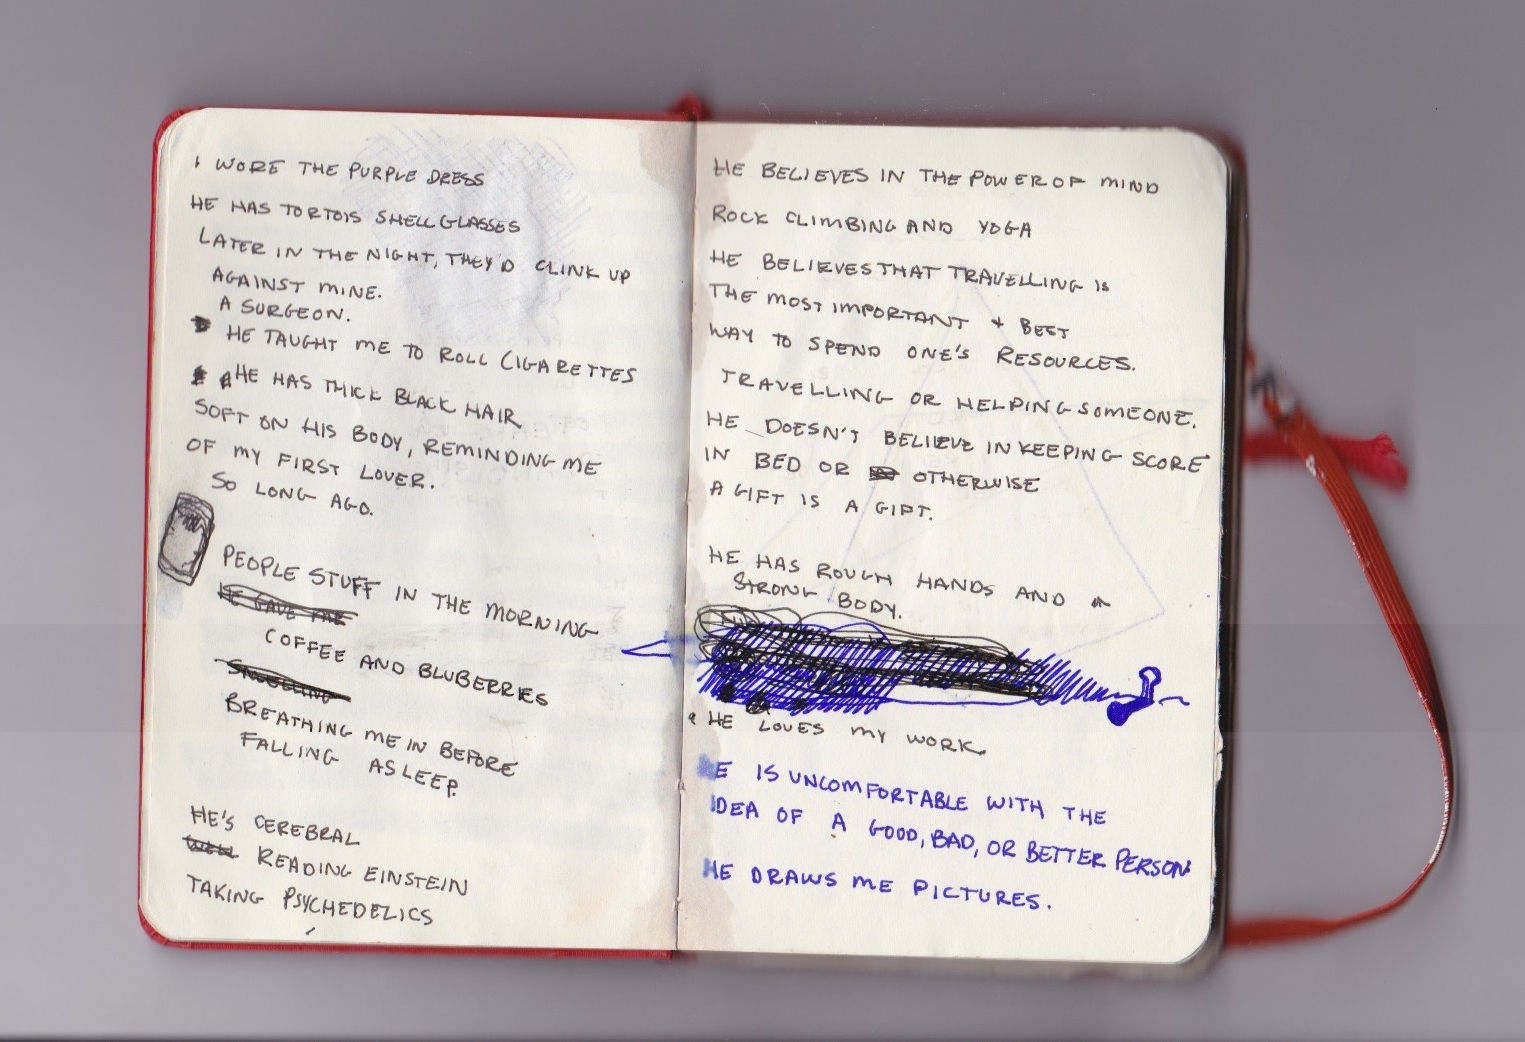 I WORE THE PURPLE DRESS
HE HAS TORTOIS SHELL GLASSES
LATER IN THE NIGHT, THEY'D CLINK UP
AGAINST MINE.
A SURGEON.
HE TAUGHT ME TO ROLL CIGARETTES
HE HAS THICK BLACK HAIR
SOFT ON HIS BODY, REMINDING ME
OF MY FIRST LOVER.
SO LONG AGO.
PEOPLE STUFF IN THE MORNING
HE GAVE ME
COFFEE AND BLUBERRIES
BREATHING ME IN BEFORE
FALLING ASLEEP.
HE'S CEREBRAL
READING EINSTEIN
TAKING PSYCHEDELICS
HE BELIEVES IN THE POWER OF MIND
ROCK CLIMBING AND YOGA
HE BELIEVES THAT TRAVELLING IS
THE MOST IMPORTANT + BEST
WAY TO SPEND ONE'S RESOURCES.
TRAVELLING OR HELPING SOMEONE.
HE DOESN'T BELIEVE IN KEEPING SCORE
IN BED OR OTHERWISE
A GIFT IS A GIFT.
HE HAS ROUGH HANDS AND A
STRONG BODY.
HE LOVES MY WORK.
HE IS UNCOMFORTABLE WITH THE
IDEA OF A GOOD, BAD, OR BETTER PERSON
HE DRAWS ME PICTURES.